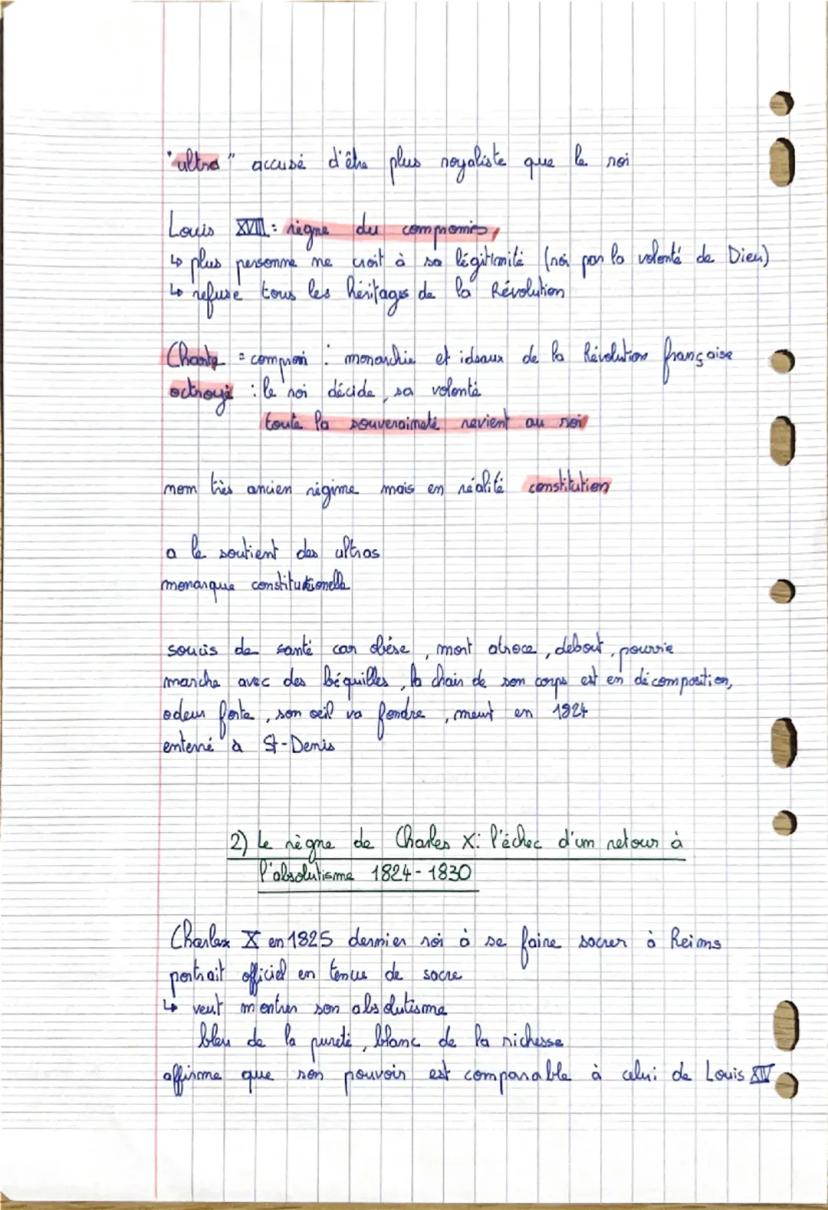 "ultra" accusé d'être plus royaliste que le roi
Louis XVIII : règne du compromis
↳ plus personne ne croit à sa légitimité (roi par la volonté de Dieu)
↳ refuse tous les héritages de la Révolution
Charte = comprom : monarchie et idéaux de la Révolution française
octroyé : le roi décide, sa volonté
toute la souveraineté revient au roi
nom très ancien régime mais en réalité constitution
a le soutient des ultras
monarque constitutionnelle
soucis de santé car obèse, mort atroce, debout, pourrie
marche avec des béquilles, la chair de son corps est en décomposition,
odeur forte, son oeil va fondre, meurt en 1824
enterré à St-Denis
2) Le règne de Charles X : l'échec d'un retour à
l'absolutisme 1824-1830
Charles X en 1825 dernier roi à se faire sacrer à Reims
portrait officiel en tenue de sacre
↳ veut montrer son absolutisme
bleu de la pureté, blanc de la richesse
affirme que son pouvoir est comparable à celui de Louis XIV